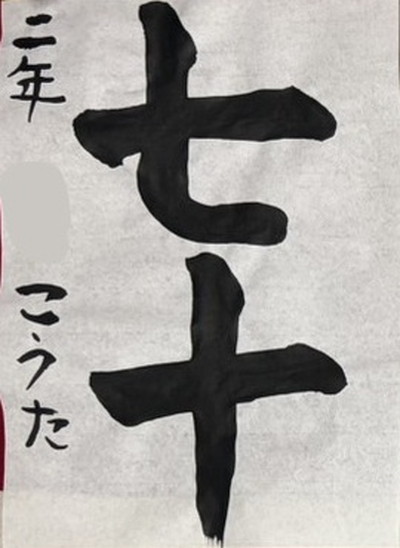 七十
二年 こうた